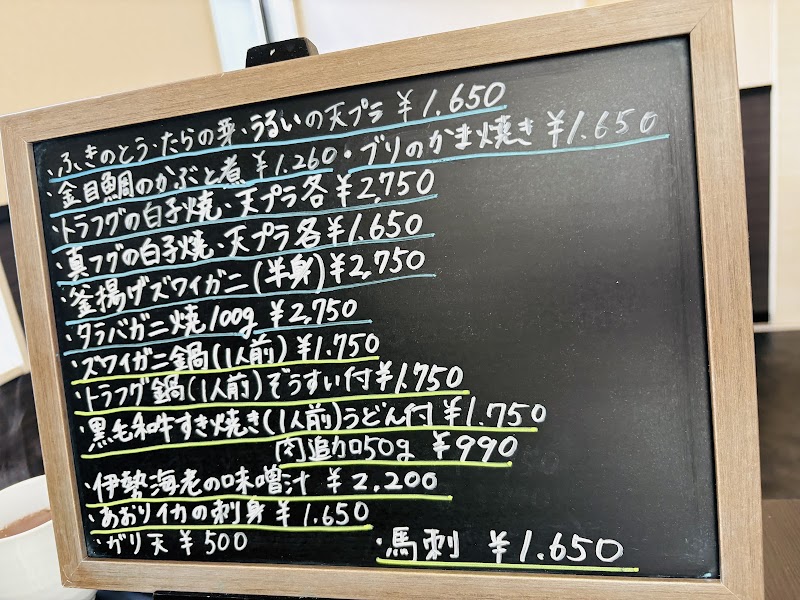 ・ふきのとう・たらの芽・うるいの天プラ ¥1.650
・金目鯛のかぶと煮 ¥1.260・ブリのかま焼き ¥1.650
・トラフグの白子焼・天プラ各¥2,750
・真フグの白子焼・天プラ各¥1.650
・釜揚げズワイガニ(半身)¥2,750
・タラバガニ焼100g ¥2,750
・ズワイガニ鍋(1人前)¥1.750
・トラフグ鍋(1人前)ぞうすい付¥1.750
・黒毛和牛すき焼き(1人前)うどん付¥1.750
肉追加50g ¥990
・伊勢海老の味噌汁 ¥2.200
・あおりイカの刺身 ¥1.650
・ガリ天 ¥500 ・馬刺 ¥1.650